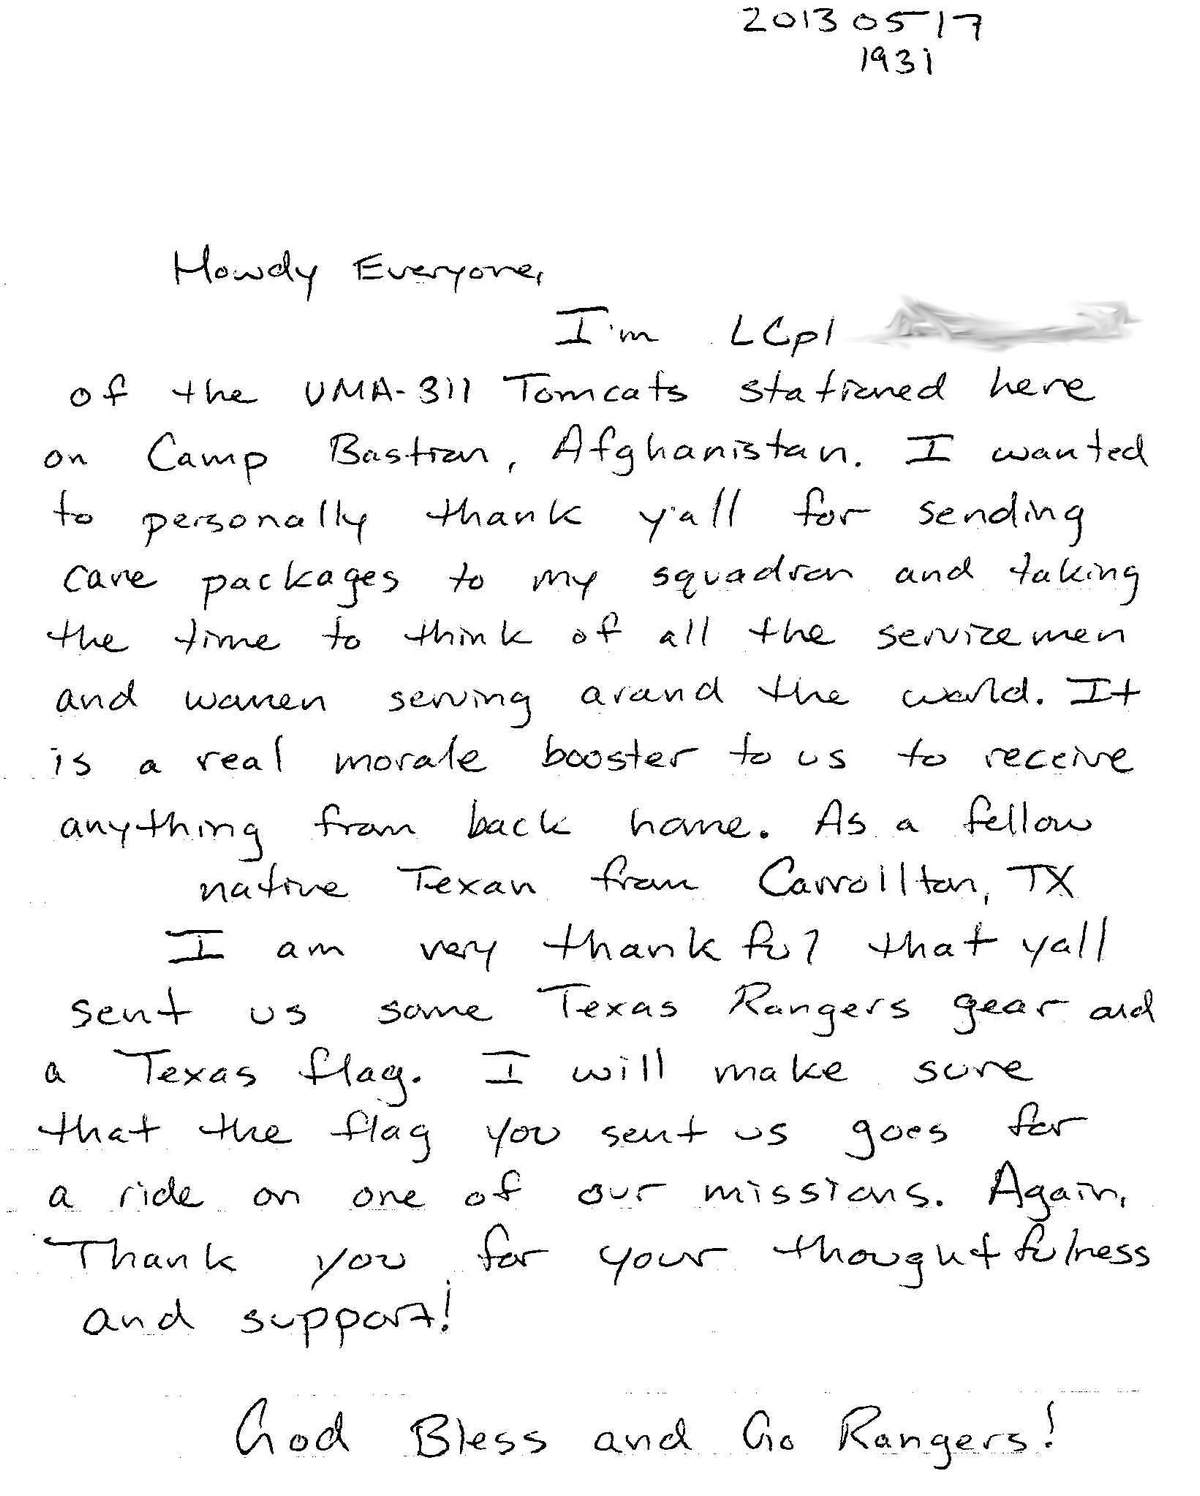 2013 05 17
1931
Howdy Everyone,
I'm LCpl
of the VMA-311 Tomcats stationed here
on Camp Bastion, Afghanistan. I wanted
to personally thank y'all for sending
care packages to my squadron and taking
the time to think of all the servicemen
and women serving around the world. It
is a real morale booster to us to receive
anything from back home. As a fellow
native Texan from Carrollton, TX
I am very thankful that yall
sent us some Texas Rangers gear and
a Texas flag. I will make sure
that the flag you sent us goes for
a ride on one of our missions. Again,
Thank you for your thoughtfulness
and support!
God Bless and Go Rangers!